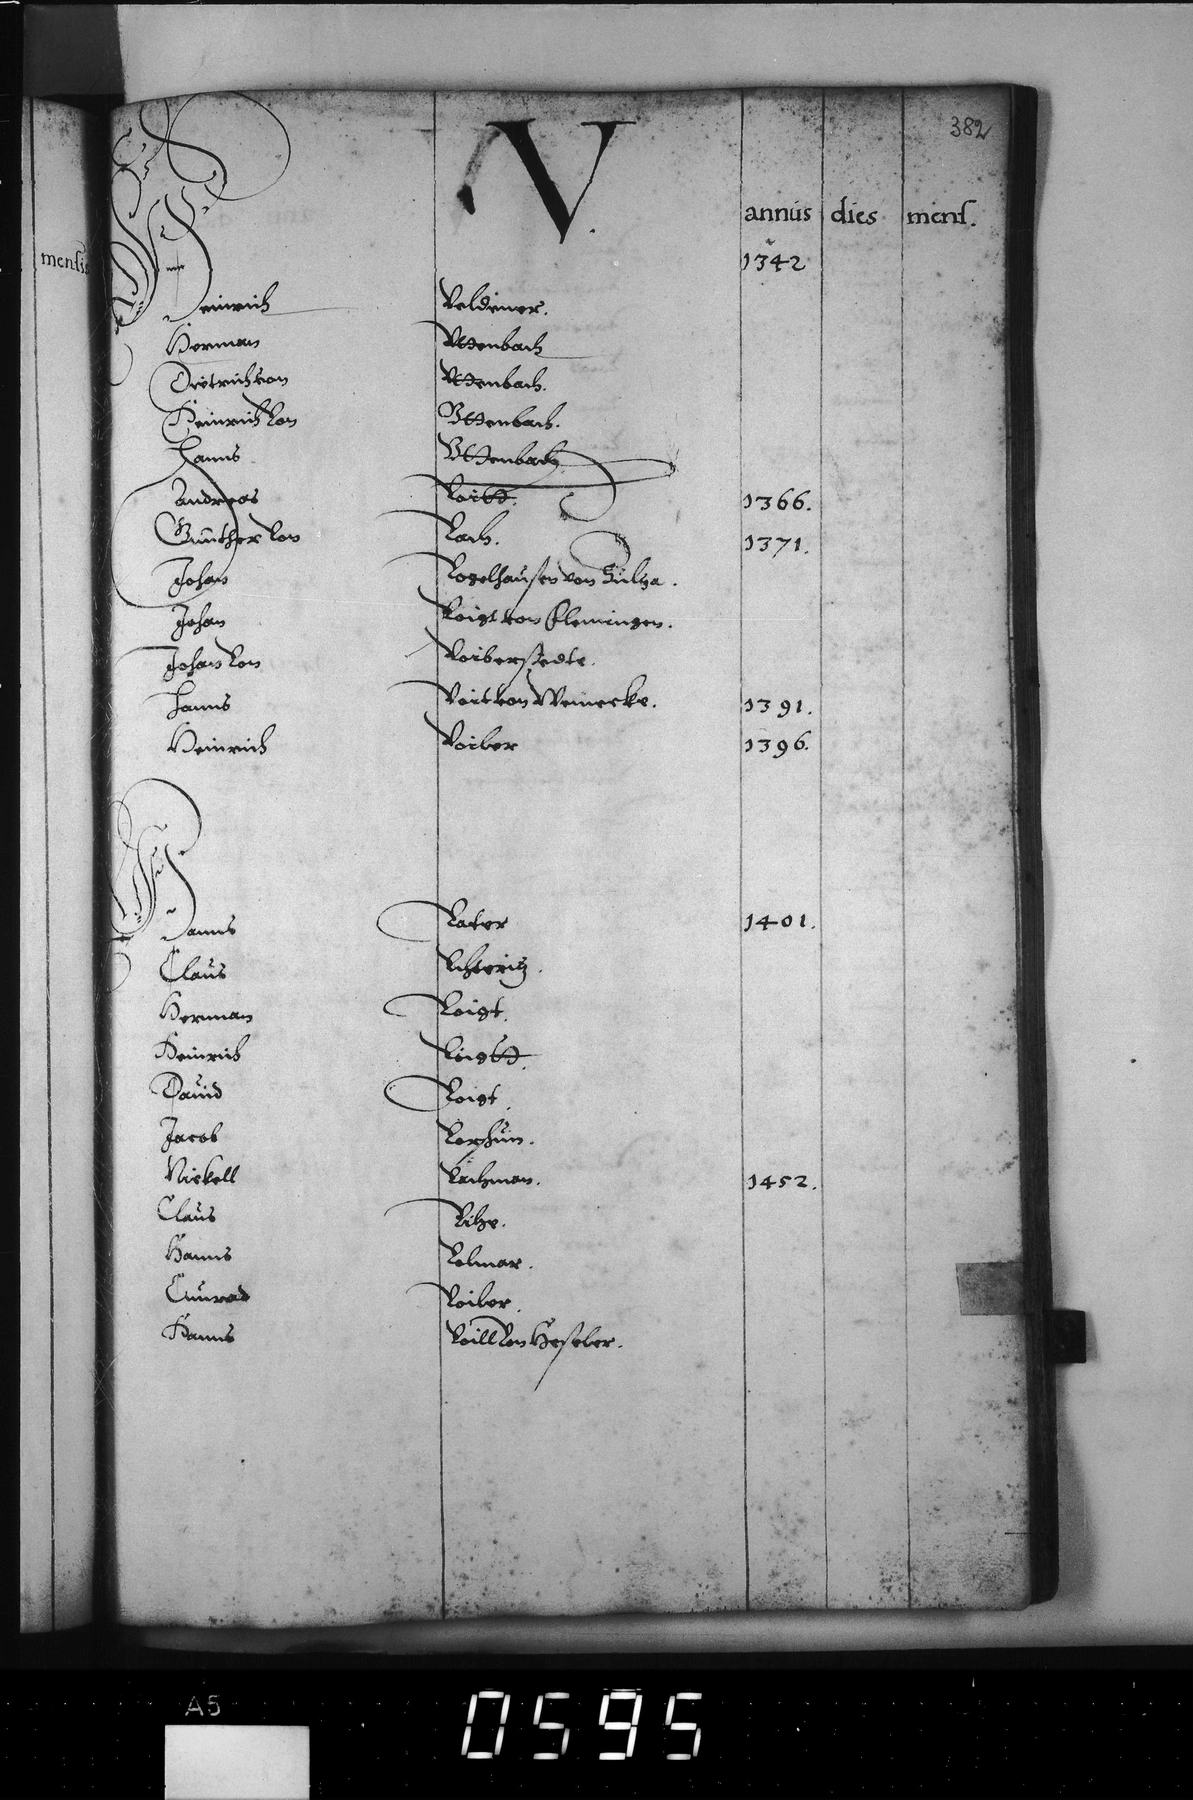 382
V.
annus dies mens.
mensis
1342
Heinrich Veldener.
Herman Vttenbach
Dietrich von Vttenbach.
Heinrich von Vttenbach.
Hanns Vttenbach
Andreas Voitt. 1366.
Gunther von Vach. 1371.
Johan Vogelhausen von Sulza.
Johan Voigt von Flemingen.
Johan von Voiberstedte.
Hanns Voit von Weinecke. 1391.
Heinrich Voiber 1396.
Hanns Vater 1401.
Claus Vchteritz.
Herman Voigt.
Heinrich Voigtt.
Dauid Voigt.
Jacob
Nickell Vachman. 1452.
Claus Vitze.
Hanns Volmar.
Cunrad Voiber.
Hanns Voill von Heseler.
A5
0595